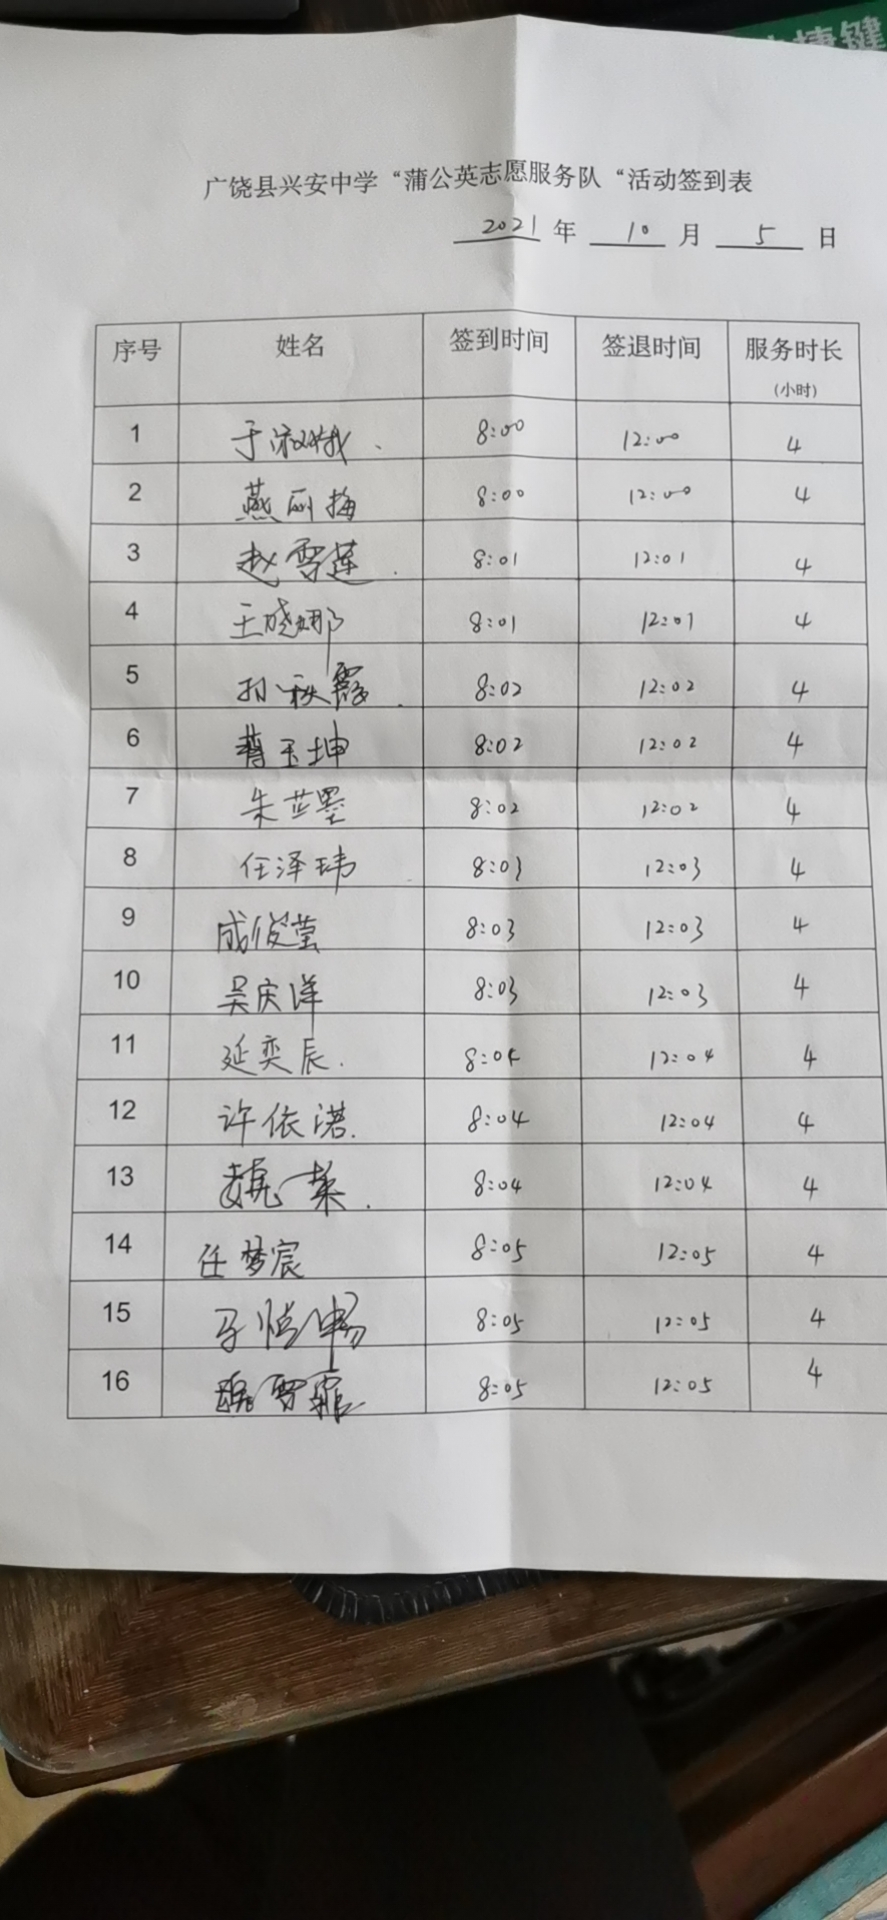 捷键
广饶县兴安中学“蒲公英志愿服务队“活动签到表
2021 年 10 月 5 日
序号 姓名 签到时间 签退时间 服务时长
(小时)
1 于淑娥 8:00 12:00 4
2 燕丽梅 8:00 12:00 4
3 赵雪莲 8:01 12:01 4
4 王晓娜 8:01 12:01 4
5 孙秋霞 8:02 12:02 4
6 玉坤 8:02 12:02 4
7 朱芷墨 8:02 12:02 4
8 任泽玮 8:03 12:03 4
9 成俊莹 8:03 12:03 4
10 吴庆洋 8:03 12:03 4
11 延奕辰. 8:04 12:04 4
12 许依诺. 8:04 12:04 4
13 8:04 12:04 4
14 任梦宸 8:05 12:05 4
15 马恺畅 8:05 12:05 4
16 魏雪霏 8:05 12:05 4